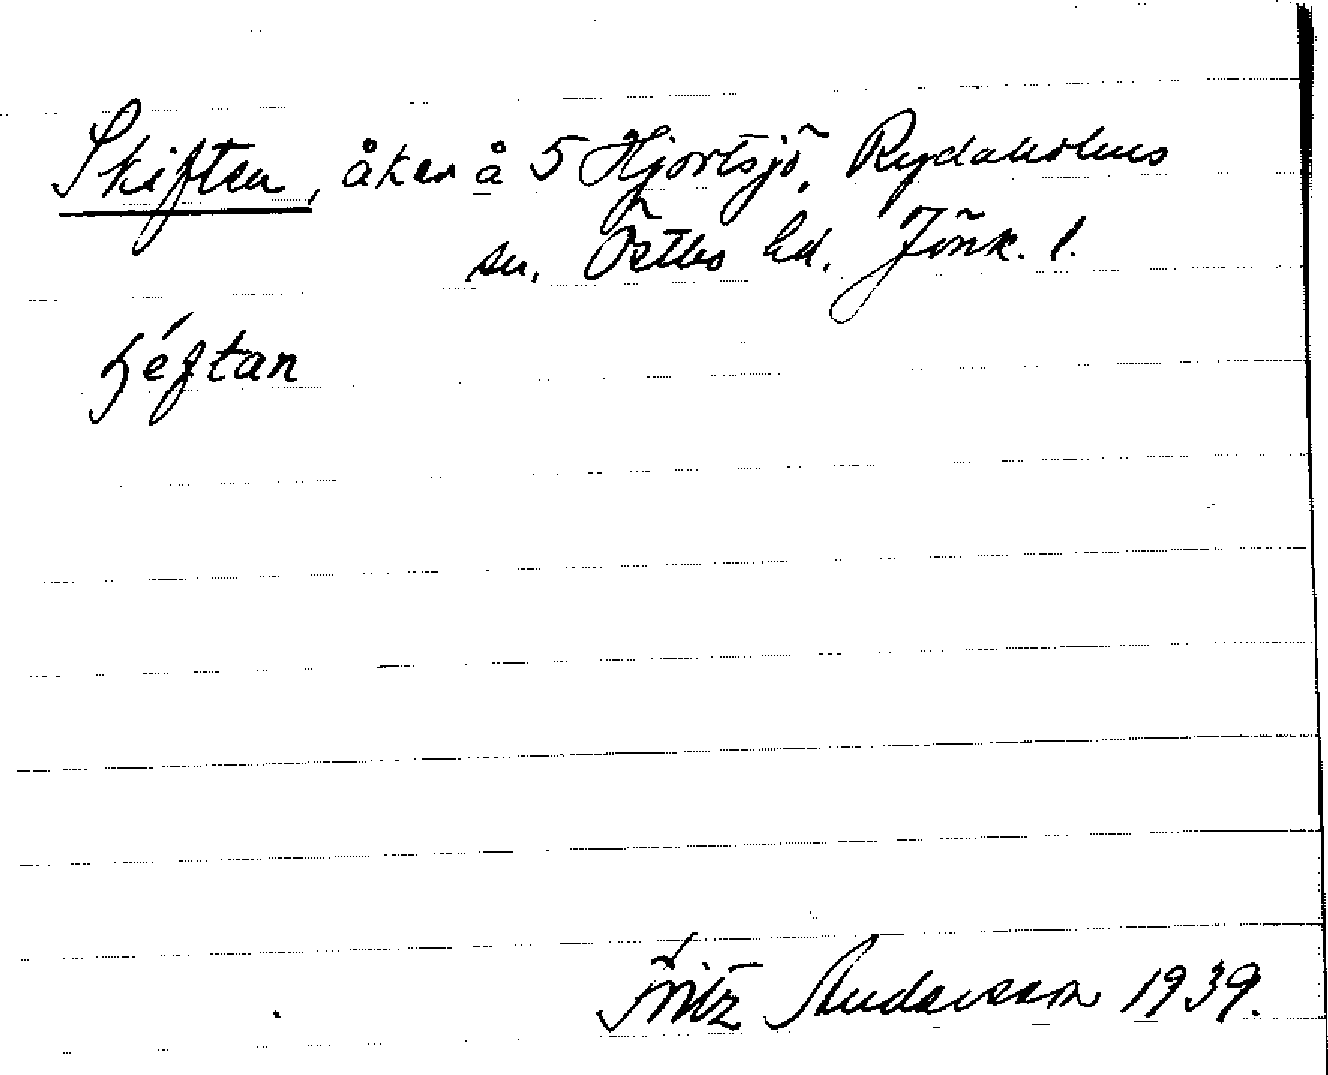 Skiften, åker å 5 Hjortsjö, Rydaholms
sn. Östbo hd. Jönk. l.
ɧéftan
Fritz Andersson 1939.